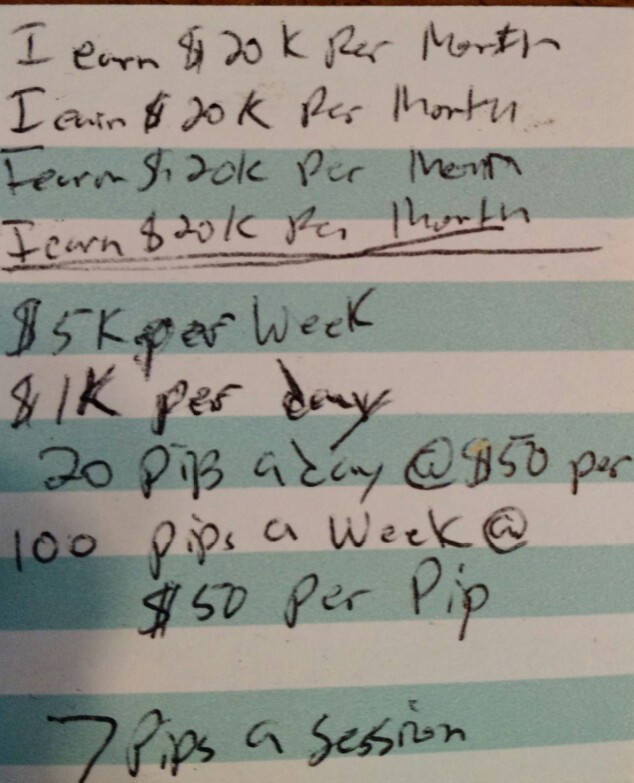 I earn $20K Per Month
I earn $20K Per Month
I earn $20K Per Month
I earn $20K Per Month
$5K per Week
$1K per day
20 Pips a day @ $50 per
100 Pips a Week @
$50 Per Pip
7 Pips a Session